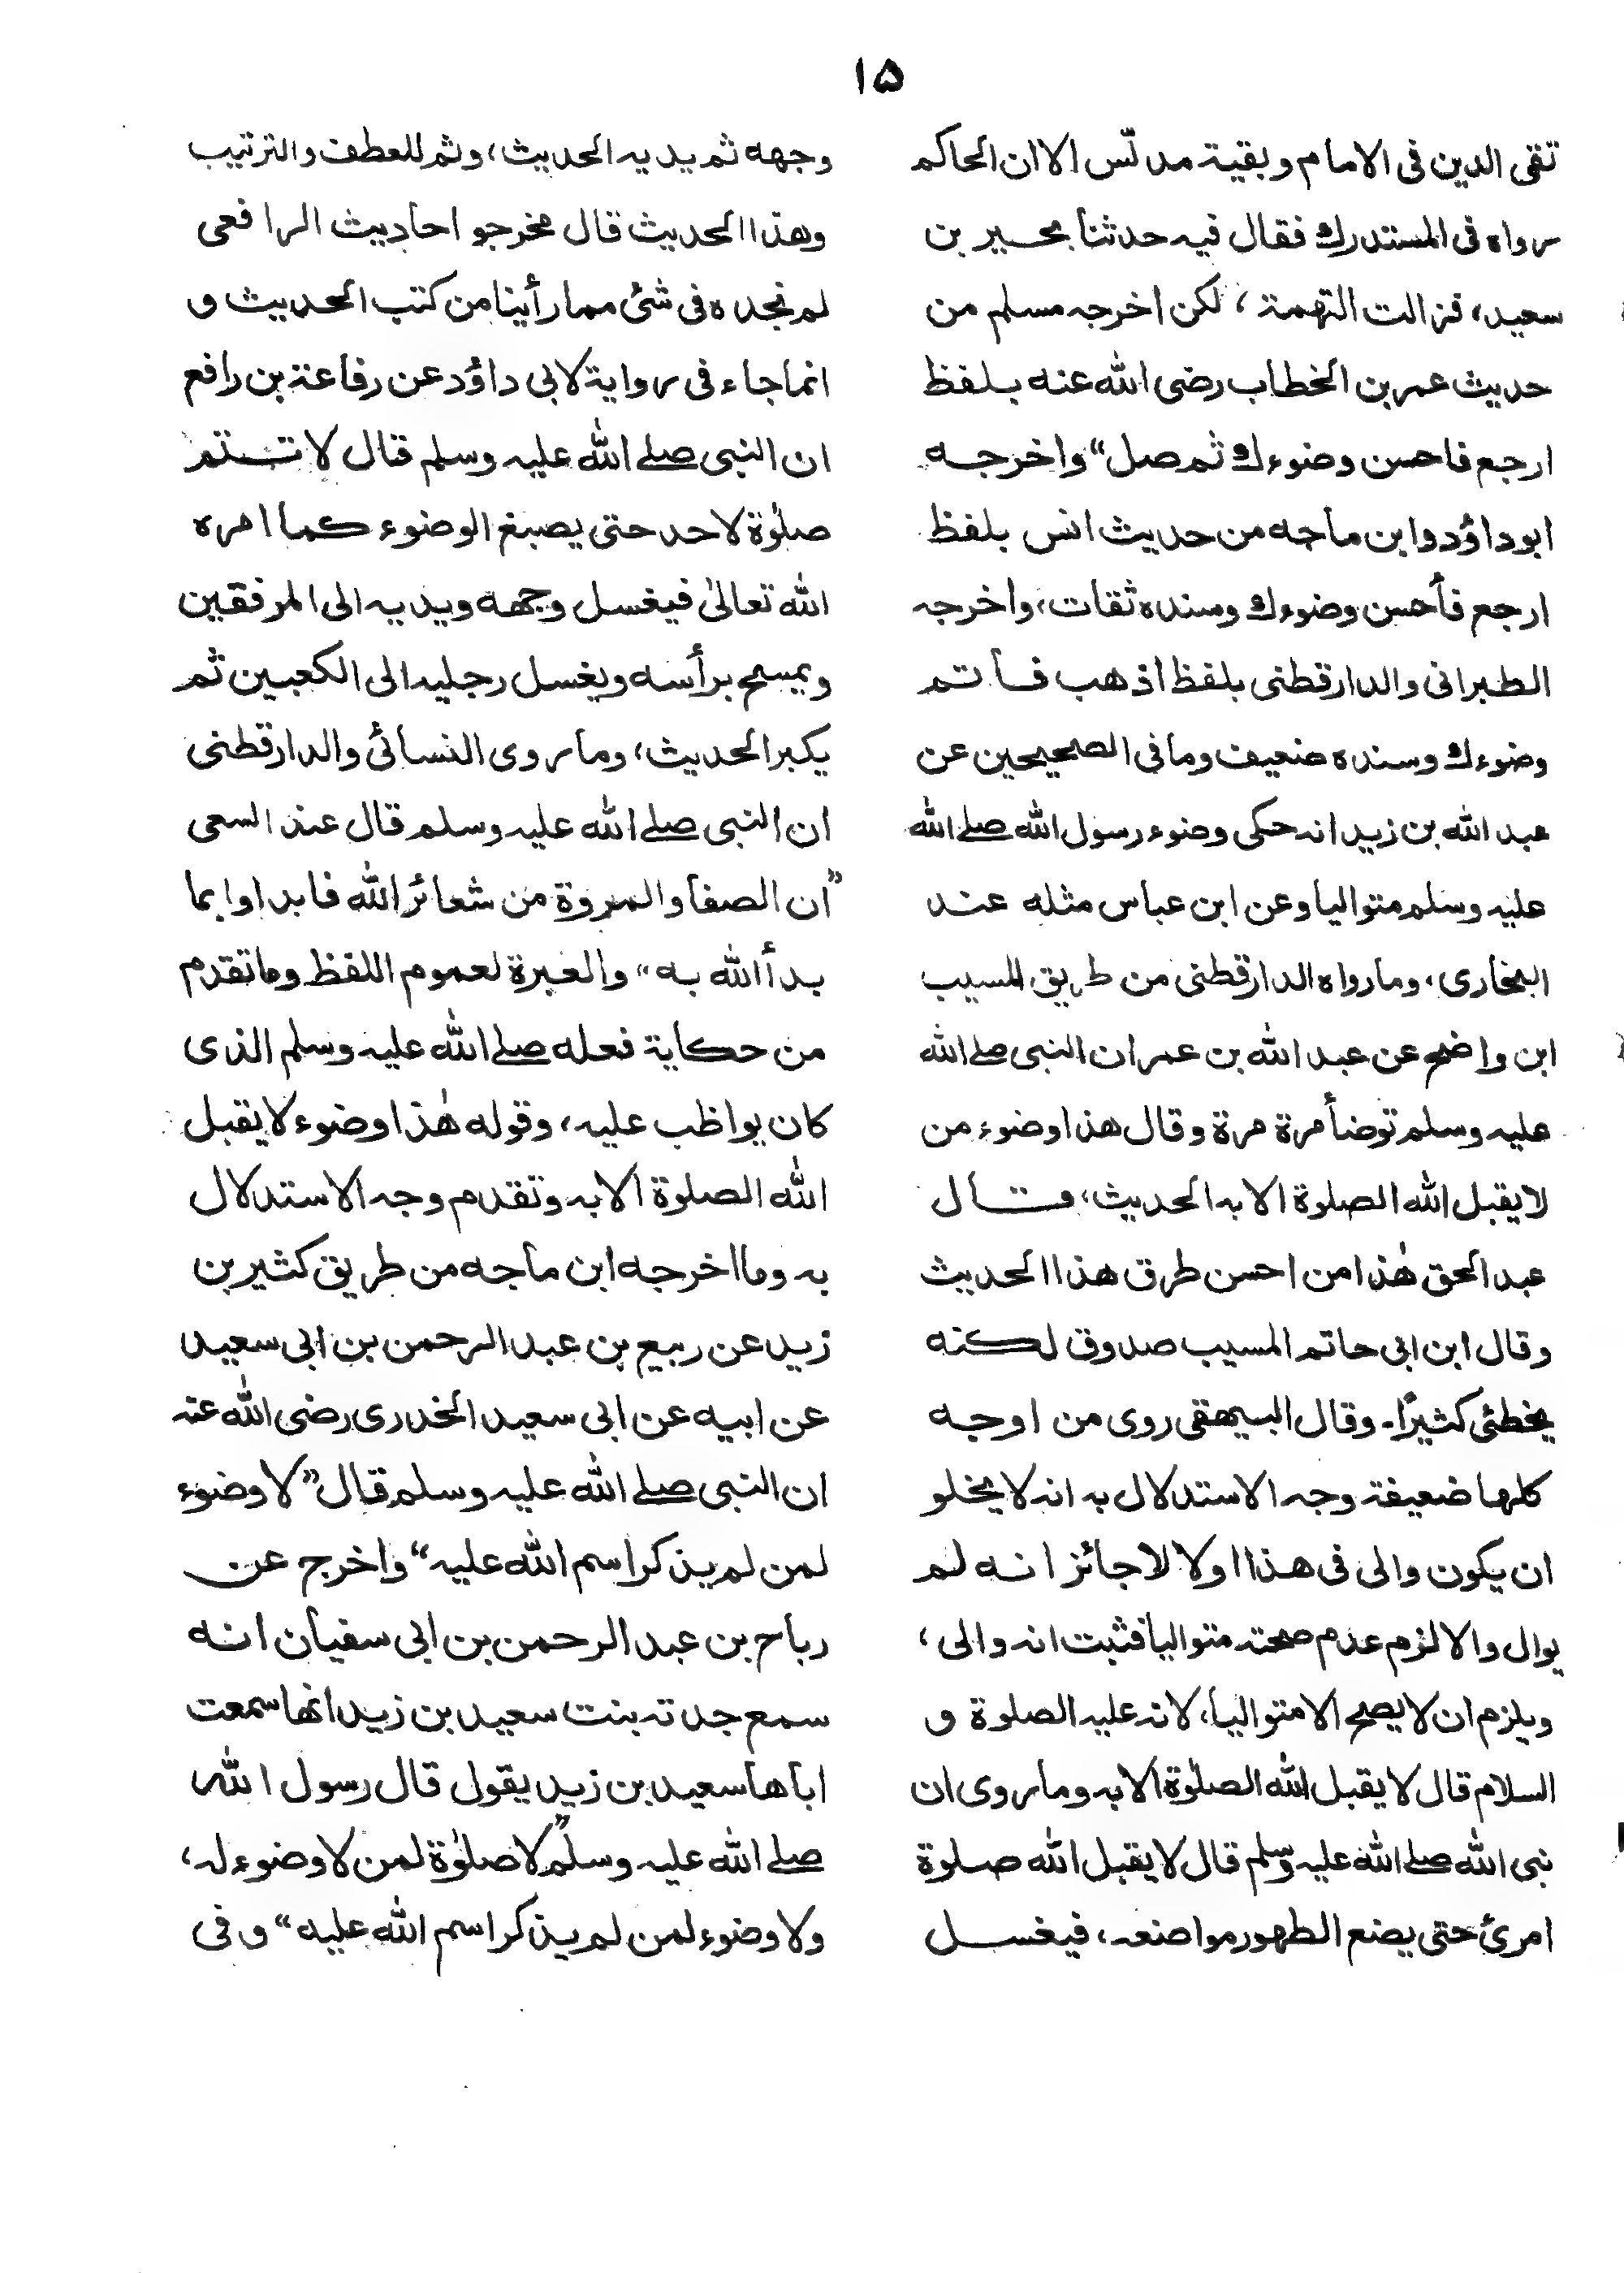 ۱۵
تقی الدین فی الامام وبقیۃ مدلّس الا ان الحاکم
رواہ فی المستدرك فقال فیہ حدثنا بحیر بن
سعید، فزالت التهمۃ، لکن اخرجہ مسلم من
حدیث عمر بن الخطاب رضی اللّٰہ عنہ بلفظ
ارجع فاحسن وضوءك ثم صل“ واخرجہ
ابوداؤد وابن ماجہ من حدیث انس بلفظ
ارجع فأحسن وضوءك وسندہ ثقات، واخرجہ
الطبرانی والدارقطنی بلفظ اذهب فاتم
وضوءك وسندہ ضعیف وما فی الصحیحین عن
عبد اللّٰہ بن زید انہ حکی وضوء رسول اللّٰہ صلے اللّٰہ
علیہ وسلم متوالیا وعن ابن عباس مثلہ عند
البخاری، وما رواہ الدارقطنی من طریق المسیب
ابن واضح عن عبد اللّٰہ بن عمر ان النبی صلے اللّٰہ
علیہ وسلم توضأ مرۃ مرۃ وقال هذا وضوء من
لا یقبل اللّٰہ الصلوۃ الا بہ الحدیث، قال
عبد الحق هٰذا من احسن طرق هذا الحدیث
وقال ابن ابی حاتم المسیب صدوق لکنہ
یخطئ کثیرًا۔ وقال البیهقی روی من اوجہ
کلها ضعیفۃ وجہ الاستدلال بہ انہ لا یخلو
ان یکون والی فی هذا اولا لا جائز انہ لم
یوال والا لزم عدم صحتہ متوالیا فثبت انہ والی،
ویلزم ان لا یصح الا متوالیا، لانہ علیہ الصلوۃ و
السلام قال لا یقبل اللّٰہ الصلٰوۃ الا بہ وما روی ان
نبی اللّٰہ صلے اللّٰہ علیہ وسلم قال لا یقبل اللّٰہ صلوۃ
امرئ حتی یضع الطهور مواضعہ، فیغسل
وجهہ ثم یدیہ الحدیث، وثم للعطف والترتیب
وهذا الحدیث قال مخرجو احادیث الرافعی
لم نجدہ فی شئ مما رأینا من کتب الحدیث و
انما جاء فی روایۃ لابی داؤد عن رفاعۃ بن رافع
ان النبی صلے اللّٰہ علیہ وسلم قال لا تتم
صلٰوۃ لاحد حتی یصبغ الوضوء کما امرہ
اللّٰہ تعالیٰ فیغسل وجهہ ویدیہ الی المرفقین
ویمسح برأسہ ویغسل رجلیہ الی الکعبین ثم
یکبر الحدیث، وما روی النسائی والدارقطنی
ان النبی صلے اللّٰہ علیہ وسلم قال عند السعی
”ان الصفا والمروۃ من شعائر اللّٰہ فابداوا بما
بدأ اللّٰہ بہ“ والعبرۃ لعموم اللفظ وما تقدم
من حکایۃ فعلہ صلے اللّٰہ علیہ وسلم الذی
کان یواظب علیہ، وقولہ هٰذا وضوء لا یقبل
اللّٰہ الصلوۃ الا بہ وتقدم وجہ الاستدلال
بہ وما اخرجہ ابن ماجہ من طریق کثیر بن
زید عن ربیع بن عبد الرحمن بن ابی سعید
عن ابیہ عن ابی سعید الخدری رضی اللّٰہ عنہ
ان النبی صلے اللّٰہ علیہ وسلم قال ”لا وضوء
لمن لم یذکر اسم اللّٰہ علیہ“ واخرج عن
رباح بن عبد الرحمن بن ابی سفیان انہ
سمع جدتہ بنت سعید بن زید انها سمعت
اباها سعید بن زید یقول قال رسول اللّٰہ
صلے اللّٰہ علیہ وسلم ”لا صلٰوۃ لمن لا وضوء لہ،
ولا وضوء لمن لم یذکر اسم اللّٰہ علیہ“ و فی